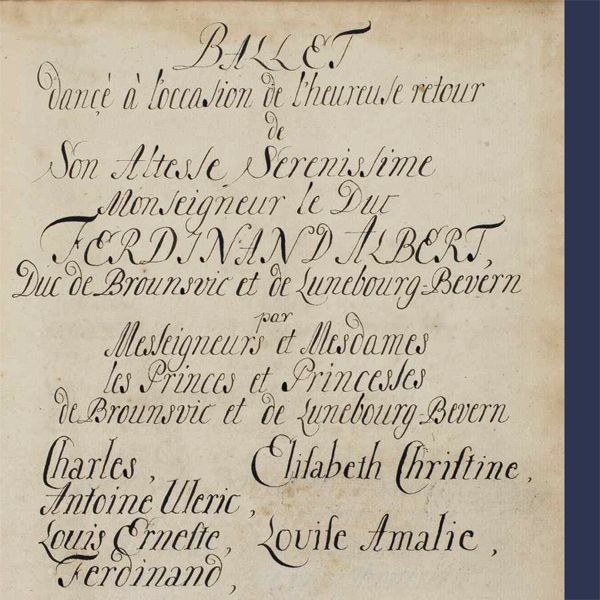 BALLET
dançé à l'occasion de l'heureuse retour
de
Son Altesse Serenissime
Monseigneur le Duc
FERDINAND ALBERT,
Duc de Brounsvic et de Lunebourg-Bevern
par
Messeigneurs et Mesdames
les Princes et Princesses
de Brounsvic et de Lunebourg-Bevern
Charles, Elisabeth Christine,
Antoine Uleric,
Louis Erneste, Louise Amalie,
Ferdinand,